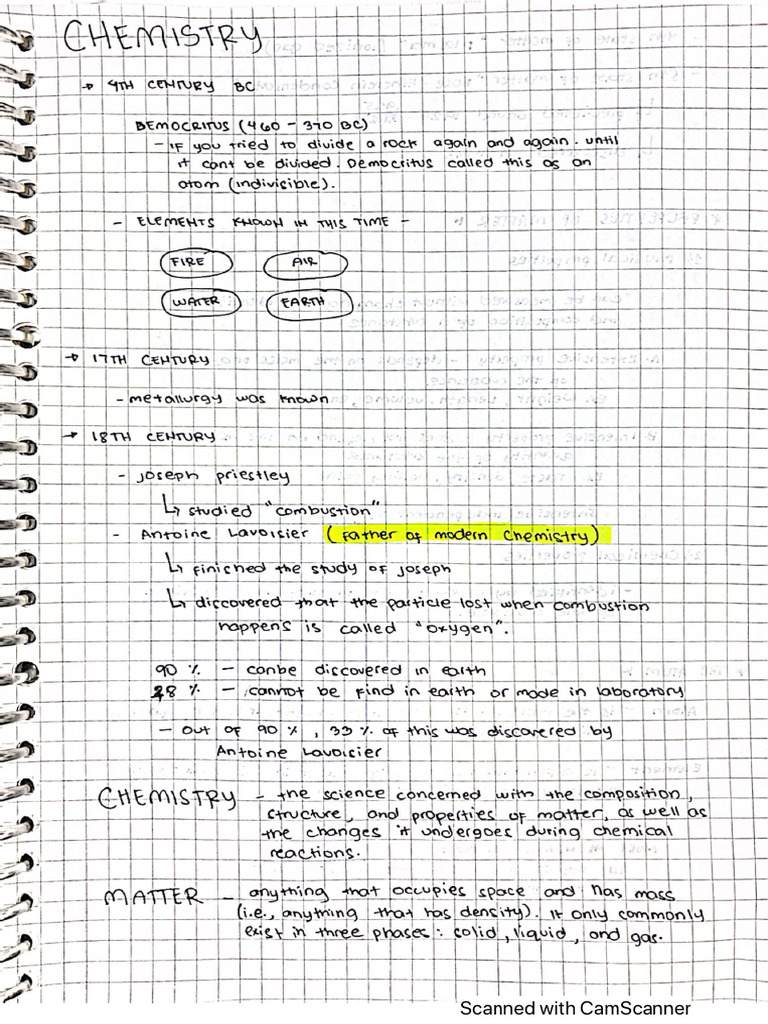 CHEMISTRY
→ 4TH CENTURY BC
DEMOCRITUS (460 - 370 BC)
- IF you tried to divide a rock again and again. until
it cant be divided. Democritus called this as an
atom (indivisible).
- ELEMENTS KNOWN IN THIS TIME -
FIRE AIR
WATER EARTH
→ 17TH CENTURY
- metallurgy was known
→ 18TH CENTURY
- Joseph priestley
↳ studied "combustion"
- Antoine Lavoisier (Father of modern Chemistry)
↳ finished the study of Joseph
↳ discovered that the particle lost when combustion
happens is called "oxygen".
90 % - canbe discovered in earth
28 % - cannot be find in earth or made in laboratory
- out of 90 %, 33 % of this was discovered by
Antoine Lavoisier
CHEMISTRY - the science concerned with the composition,
structure, and properties of matter, as well as
the changes it undergoes during chemical
reactions.
MATTER - anything that occupies space and has mass
(i.e., anything that has density). It only commonly
exist in three phases: solid, liquid, and gas.
Scanned with CamScanner